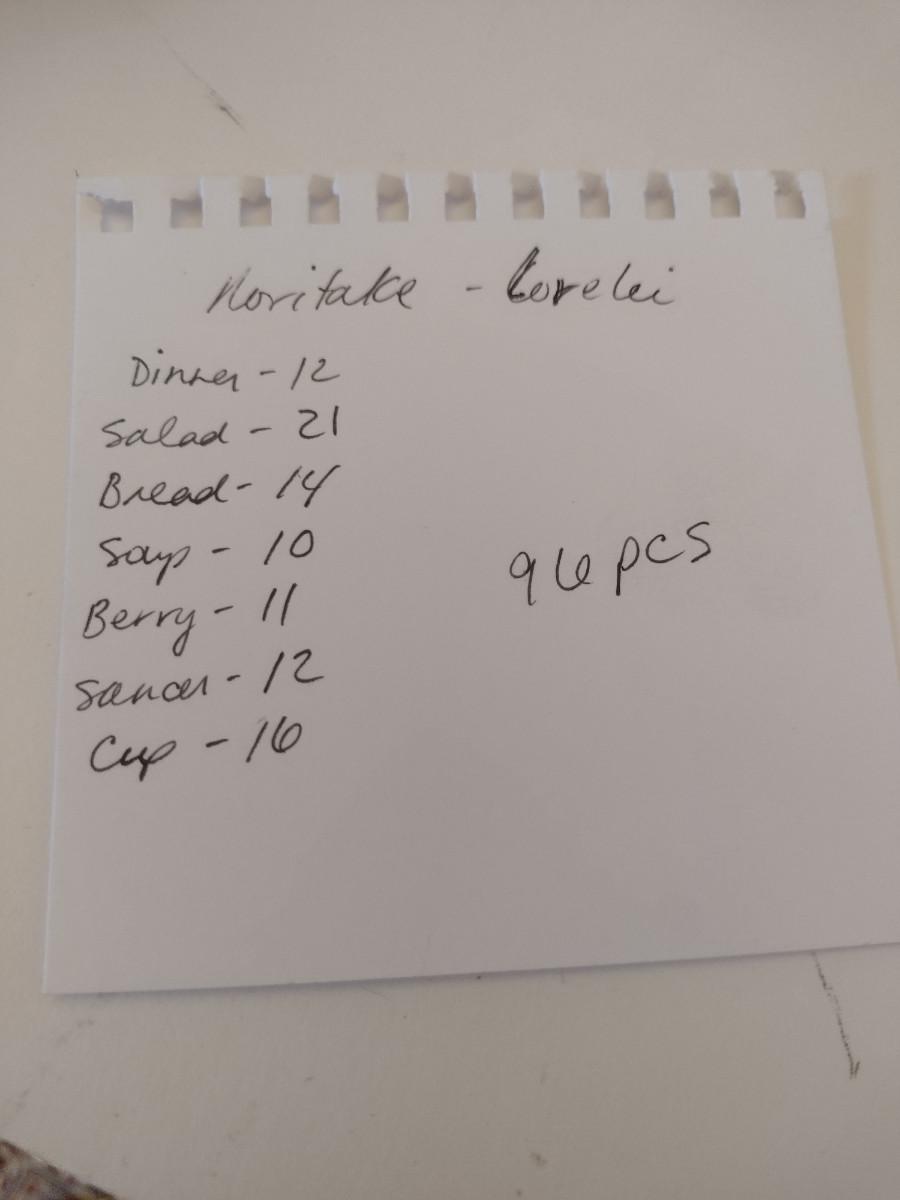 Noritake - Lorelei
Dinner - 12
Salad - 21
Bread - 14
Soup - 10
Berry - 11
Saucer - 12
Cup - 16
96 pcs